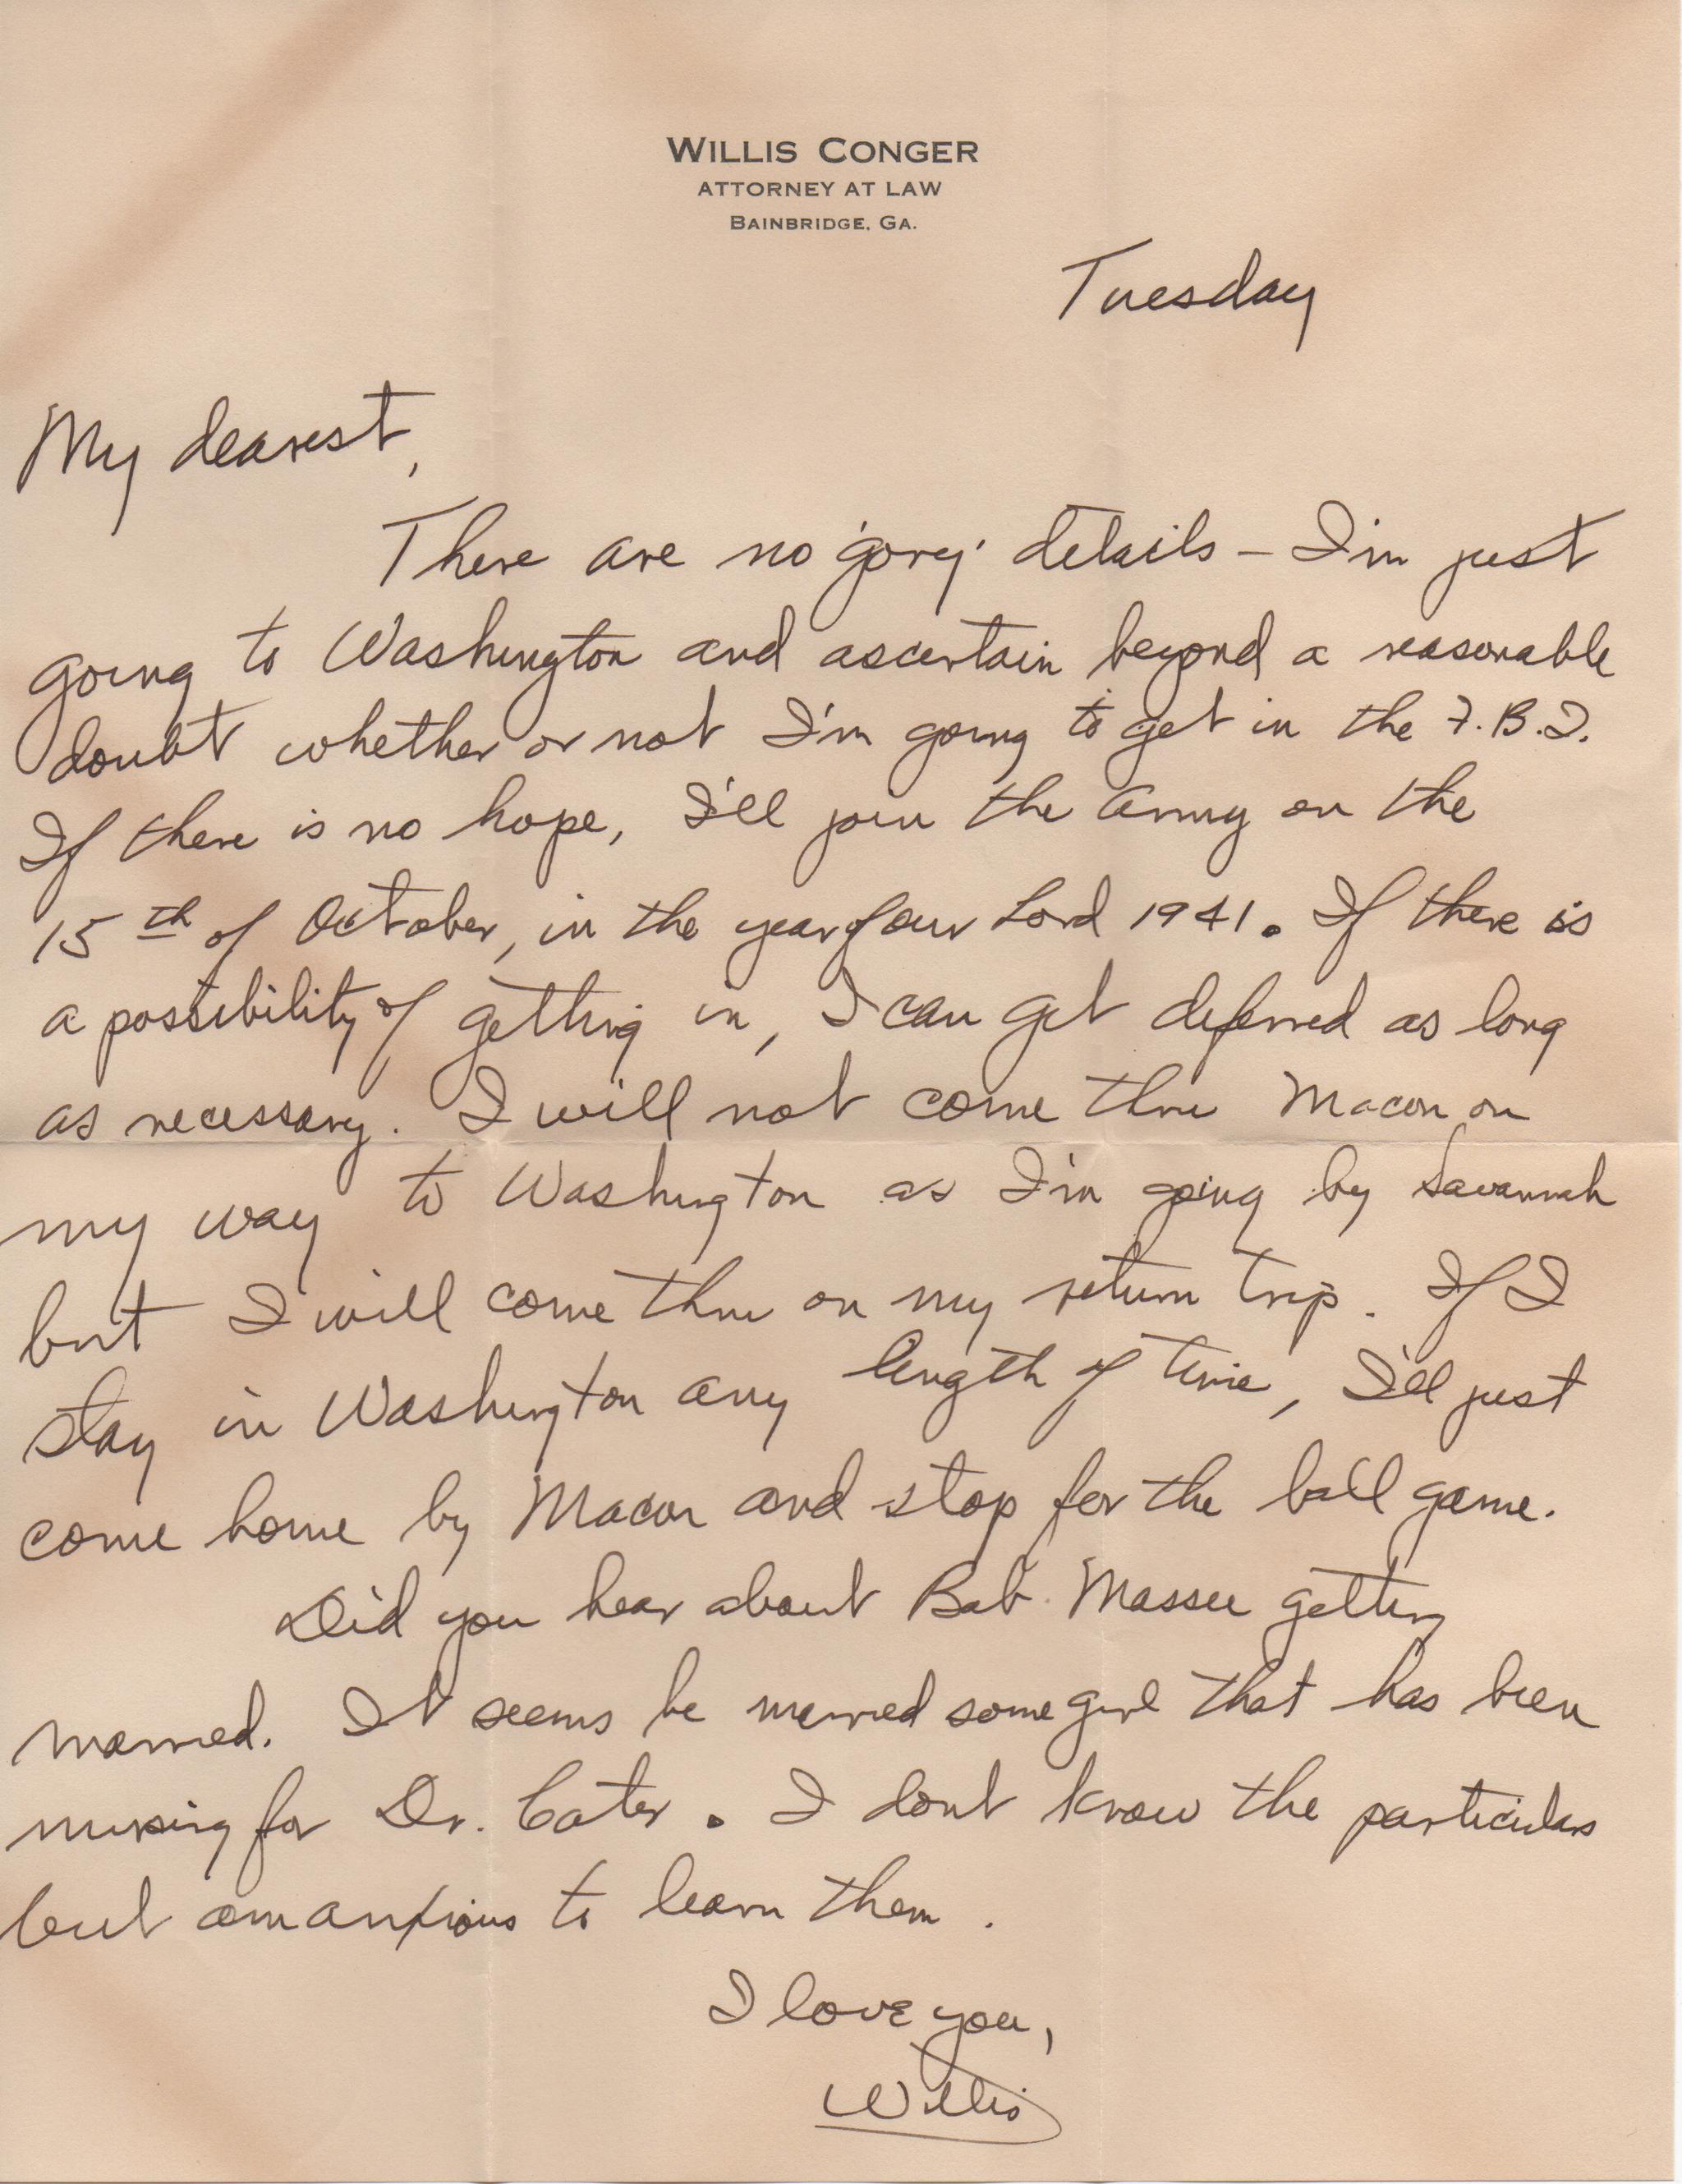 WILLIS CONGER
ATTORNEY AT LAW
BAINBRIDGE, GA.
Tuesday
My dearest,
There are no 'gory' details – I'm just
going to Washington and ascertain beyond a reasonable
doubt whether or not I'm going to get in the F.B.I.
If there is no hope, I'll join the army on the
15th of October, in the year of our Lord 1941. If there is
a possibility of getting in, I can get deferred as long
as necessary. I will not come thru Macon on
my way to Washington as I'm going by Savannah
but I will come thru on my return trip. If I
stay in Washington any length of time, I'll just
come home by Macon and stop for the ball game.
Did you hear about Bob Massee getting
married. It seems he married some girl that has been
nursing for Dr. Cater. I dont know the particulars
but am anxious to learn them.
I love you,
Willis